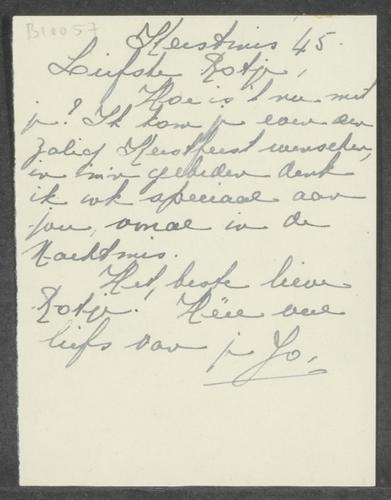 B10057
Kerstmis 45.
Liefste Rotje,
Hoe is 't nu met
je? Ik kom je even een
zalig Kerstfeest wenschen,
in m'n gebeden denk
ik ook speciaal aan
jou, vooral in de
Nachtmis.
Het beste lieve
Rotje. Hele veel
liefs van je Jo,